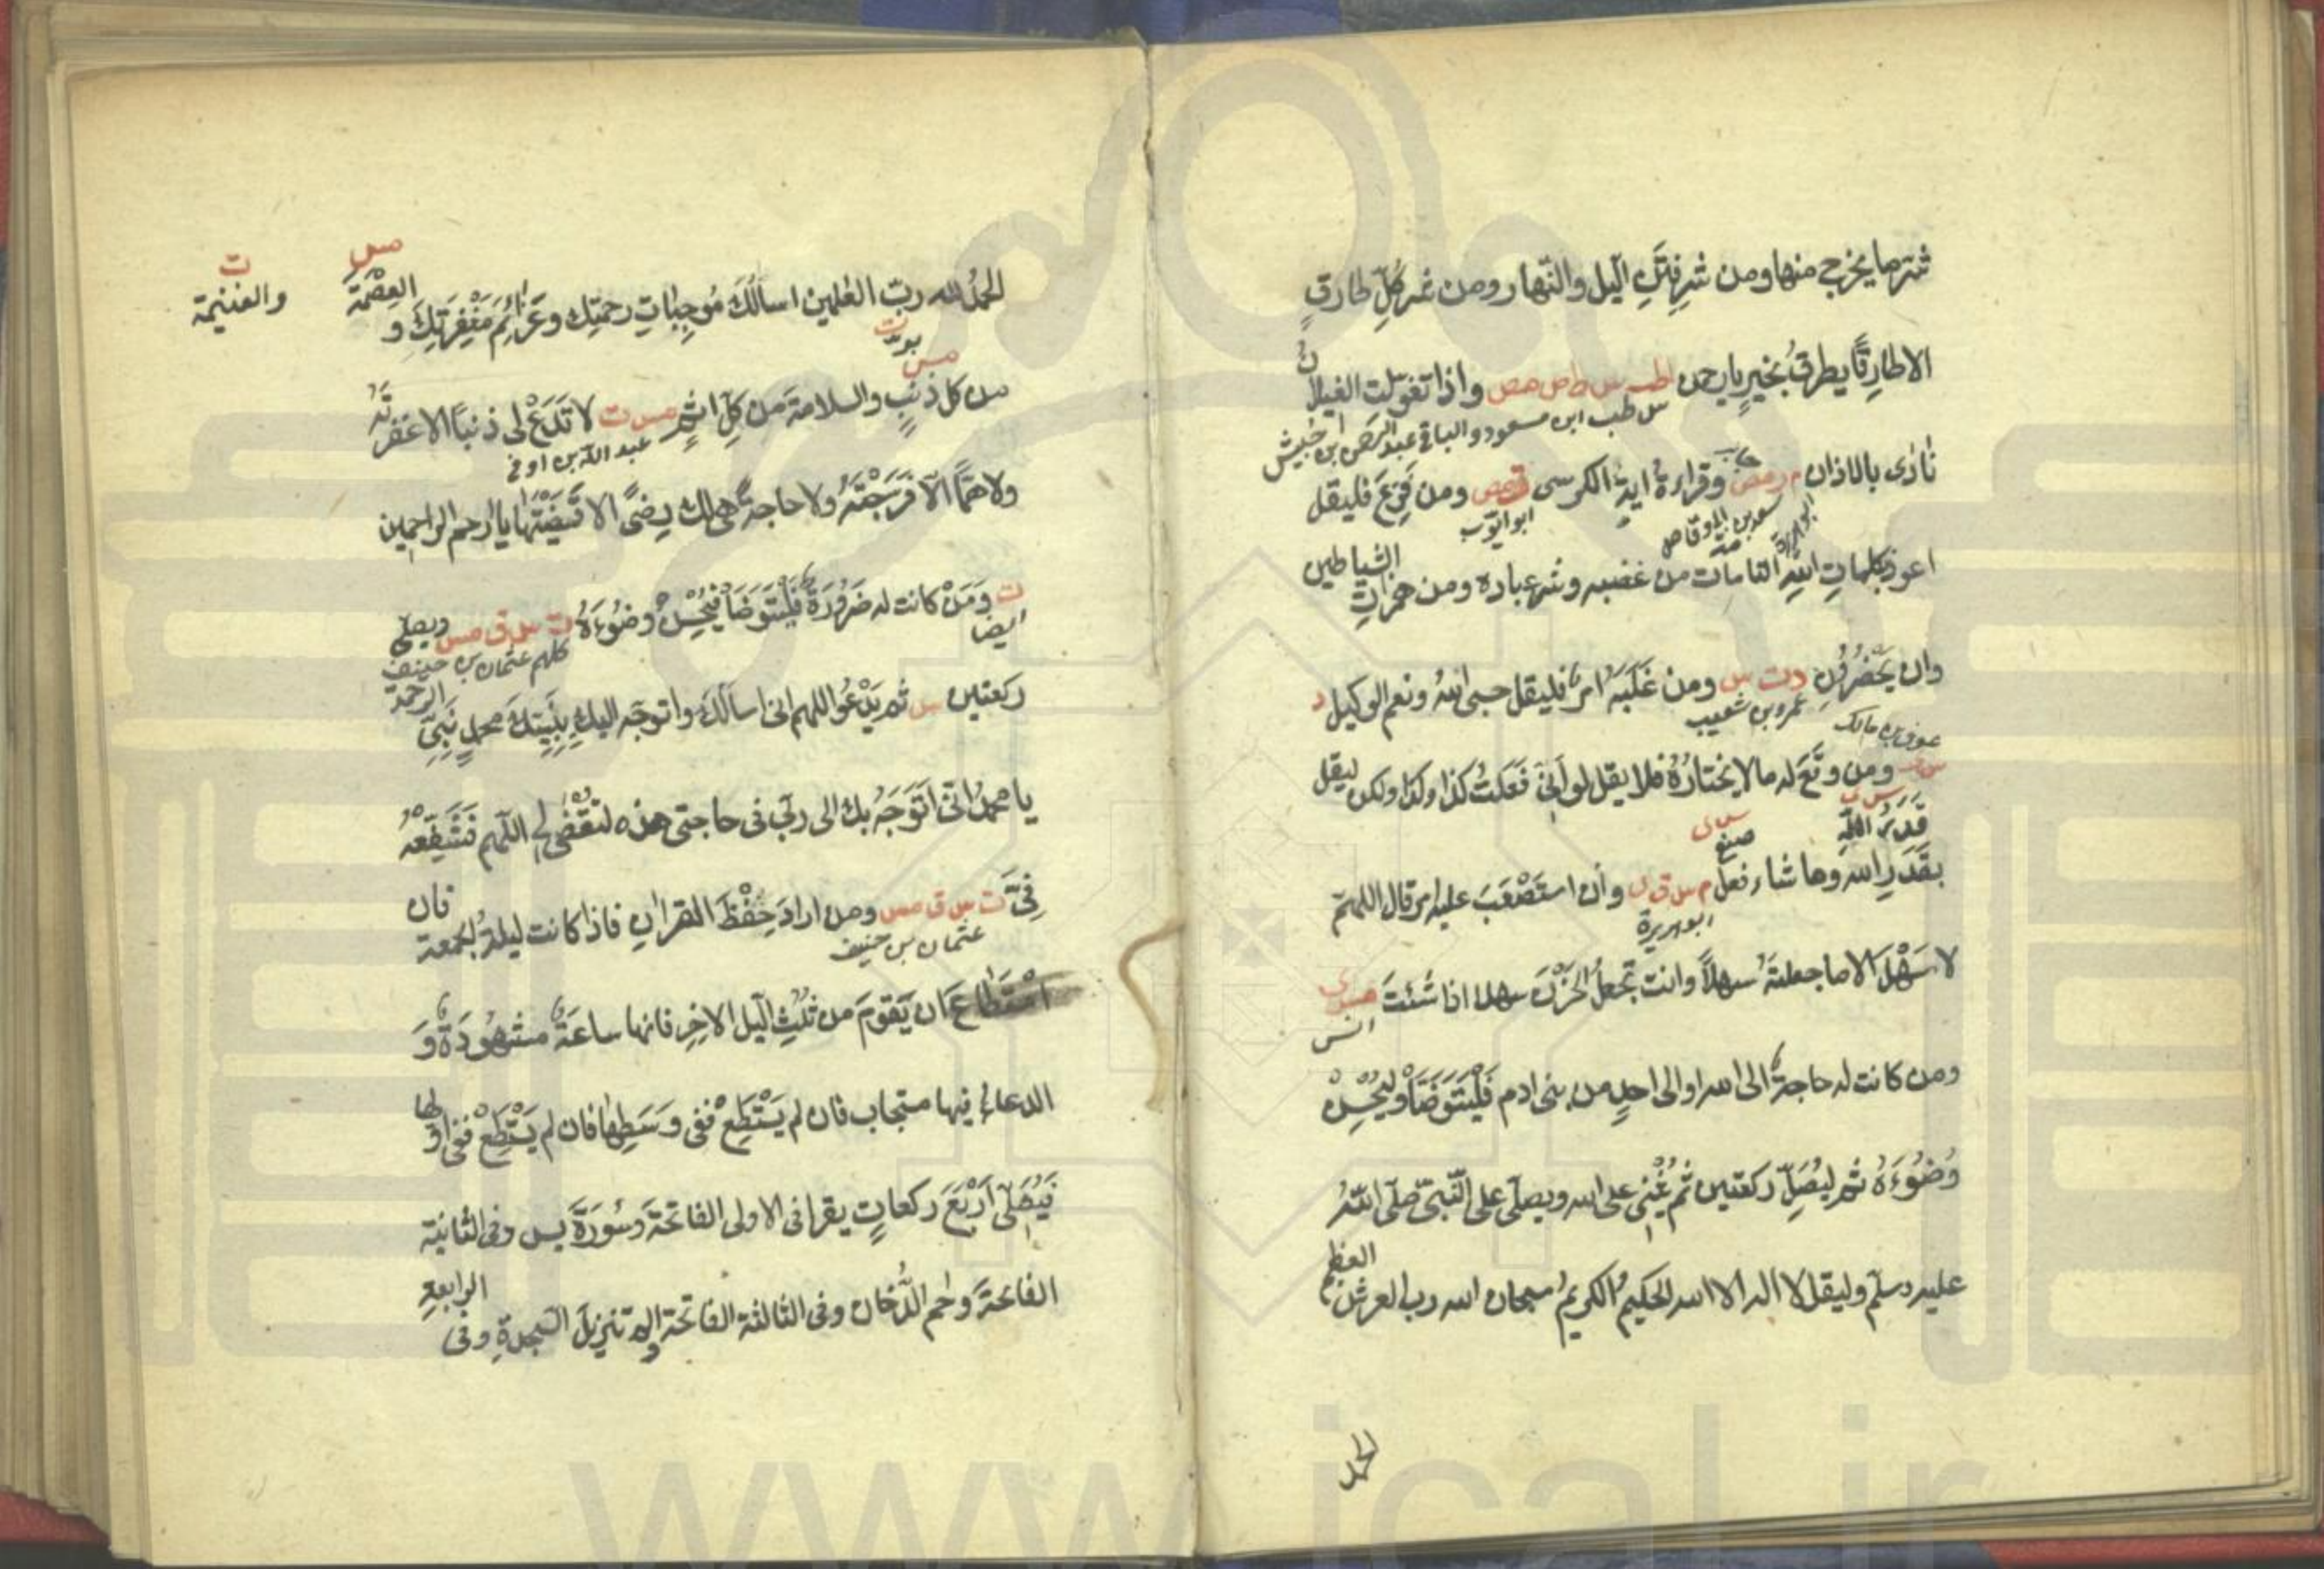 شر ما يخرج منها ومن شر فتن اليل والنهار ومن شر كل طارق
الا طارقًا يطرق بخير يا رحمن طب س ط مص مص واذا تغولت الغيلان
س طب ابن مسعود والباقى عبد الرحمن ابن خبيش
نادى بالاذان م ر مص وقراءة اية الكرسى ت مص ومن فزع فليقل
ابو هريرة سعد بن ابى وقاص ابو ايوب
اعوذ بكلمات الله التامات من غضبه وشر عباده ومن همزات الشياطين
وان يحضرون د ت س ومن غلبه امر فليقل حسبى الله ونعم الوكيل د
عمرو بن شعيب عوف بن مالك
ومن وقع له ما لا يختاره فلا يقل لو أنى فعلت كذا وكذا ولكن ليقل
قدر الله
س ى صنع س ى
بقدر الله وما شاء فعل م س ق ى وان استصعب عليه امر قال اللهم
ابو هريرة
لا سهل الا ما جعلته سهلاً وانت تجعل الحزن سهلا اذا شئت حب ى
انس
ومن كانت له حاجة الى الله او الى احد من بنى ادم فليتوضأ وليحسن
وضوءه ثم ليصل ركعتين ثم يثنى على الله ويصلى على النبى صلى الله
عليه وسلم وليقل لا اله الا الله الحكيم الكريم سبحان الله رب العرش العظيم
الحمد
الحمد لله رب العلمين اسالك موجبات رحمتك وعزائم مغفرتك و العصمة مس والغنيمة ت
من كل ذنب والسلامة من كل اثم مس ت لا تدع لى ذنبًا الا غفرته
عبد الله بن اوفى
ولا همًّا الا فرجته ولا حاجة هى لك رضًى الا قضيتها يا ارحم الراحمين
ت ومن كانت له ضرورة فليتوضأ فيحسن وضوءه ت س ق مس ويصلى
ايضا كلهم عثمان بن حنيف
ركعتين س ثم يدعو اللهم انى اسالك واتوجه اليك بنبيك محمد نبى الرحمة
يا محمد انى اتوجه بك الى ربى فى حاجتى هذه لتقضى لى اللهم فشفعه
فىّ ت س ق مس ومن اراد حفظ القران فاذا كانت ليلة الجمعة فان
عثمان بن حنيف
استطاع ان يقوم من ثلث اليل الاخر فانها ساعة مشهودة و
الدعاء فيها مستجاب فان لم يستطع ففى وسطها فان لم يستطع ففى اولها
فيصلى اربع ركعات يقرا فى الاولى الفاتحة وسورة يس وفى الثانية
الفاتحة وحم الدخان وفى الثالثة الفاتحة والم تنزيل السجدة وفى الرابعة
www.ical.ir